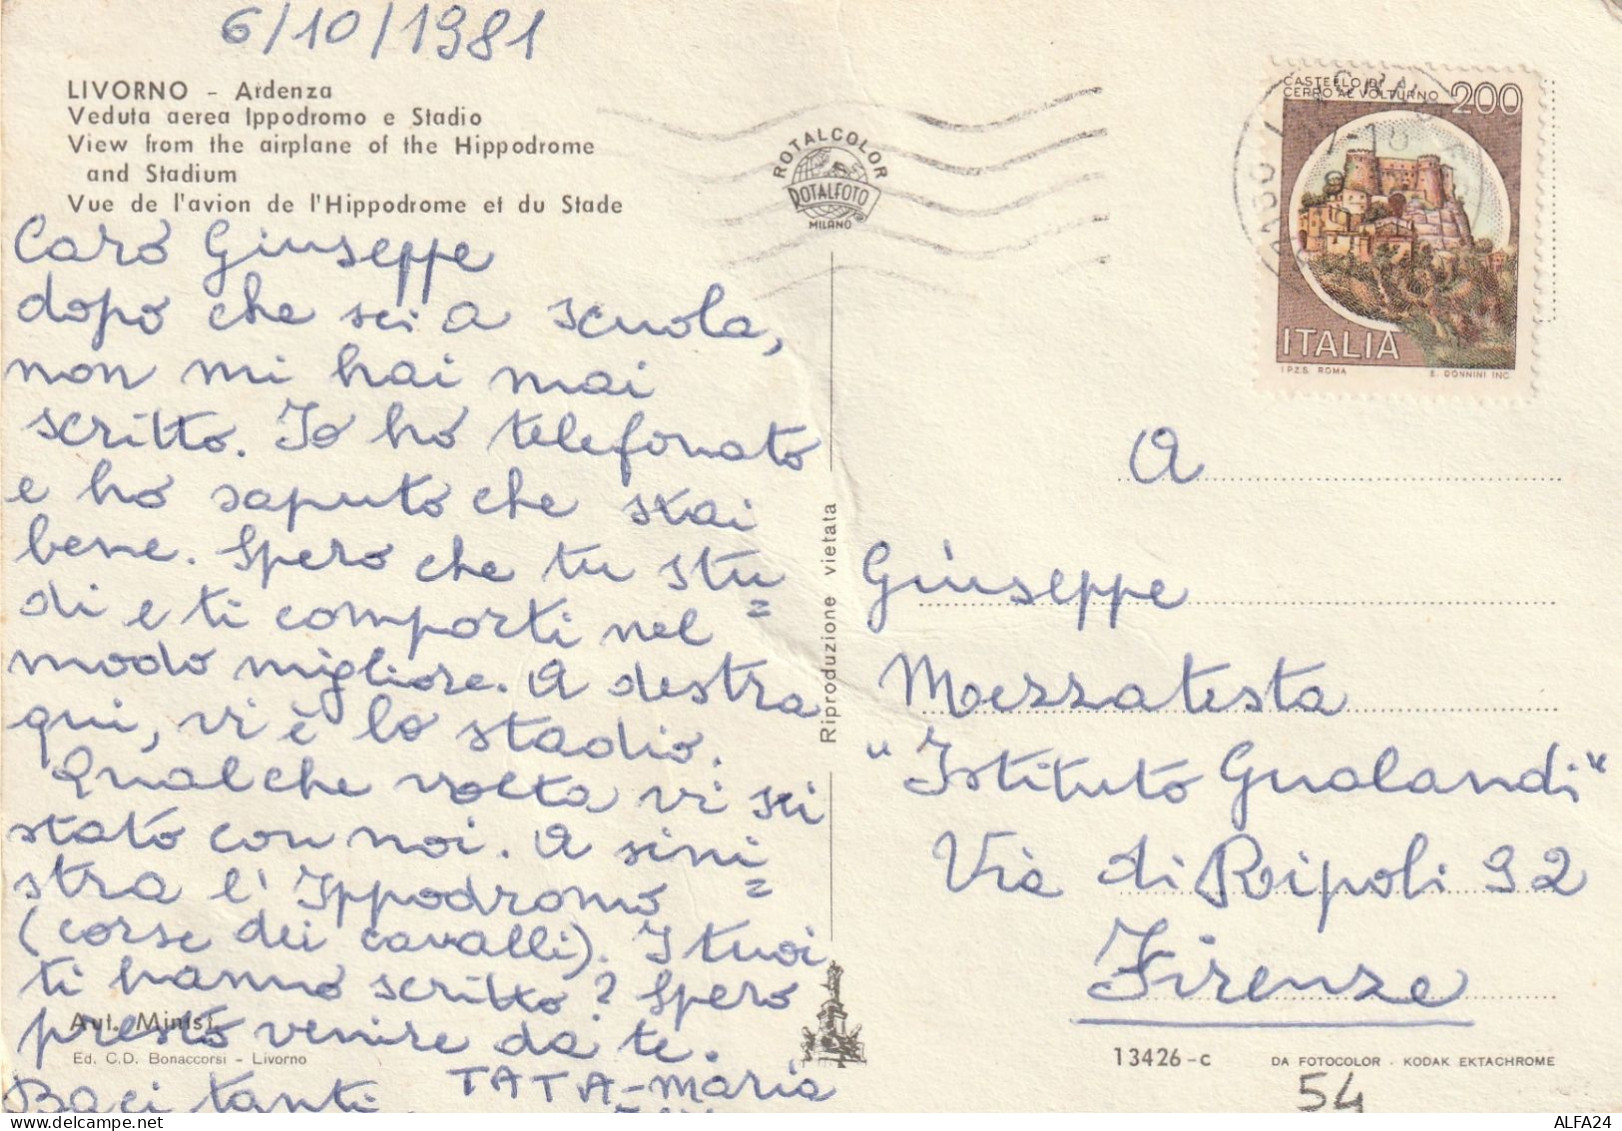 6/10/1981
LIVORNO - Ardenza
Veduta aerea Ippodromo e Stadio
View from the airplane of the Hippodrome
and Stadium
Vue de l'avion de l'Hippodrome et du Stade
Caro Giuseppe
dopo che sei a scuola,
non mi hai mai
scritto. Io ho telefonato
e ho saputo che stai
bene. Spero che tu stu=
di e ti comporti nel
modo migliore. A destra
qui, vi è lo stadio.
Qualche volta vi sei
stato con noi. A sini=
stra l'Ippodromo
(corse dei cavalli). I tuoi
ti hanno scritto? Spero
presto venire da te.
Baci tanti. TATA-Maria
Aut. Minist.
Ed. C.D. Bonaccorsi - Livorno
ROTALCOLOR
ROTALFOTO
MILANO
Riproduzione vietata
CASTELLO DI
CERRO AL VOLTURNO 200
ITALIA
I.P.Z.S. ROMA E. DONNINI INC.
A
Giuseppe
Mezzatesta
"Istituto Gualandi"
Via di Ripoli 92
Firenze
13426-c DA FOTOCOLOR - KODAK EKTACHROME
54
www.delcampe.net
ALFA24